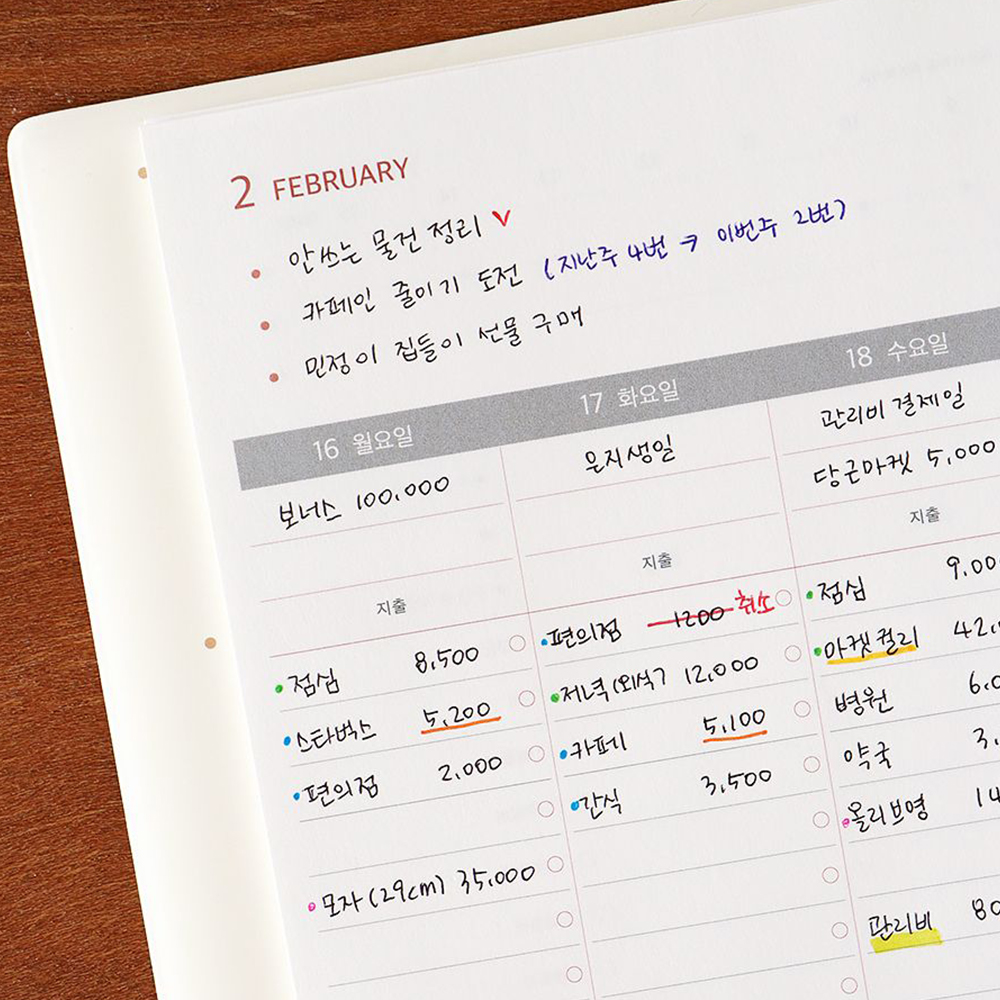 2 FEBRUARY
안쓰는 물건 정리 V
카페인 줄이기 도전 (지난주 4번 → 이번주 2번)
민정이 집들이 선물 구매
16 월요일
보너스 100,000
지출
점심 8,500
스타벅스 5,200
편의점 2,000
모자(29cm) 35,000
17 화요일
은지생일
지출
편의점 1200 취소
저녁(외식) 12,000
카페 5,100
간식 3,500
18 수요일
관리비 결제일
당근마켓 5,000
지출
점심 9,00
마켓컬리 42,
병원 6,0
약국 3,
올리브영 14
관리비 80